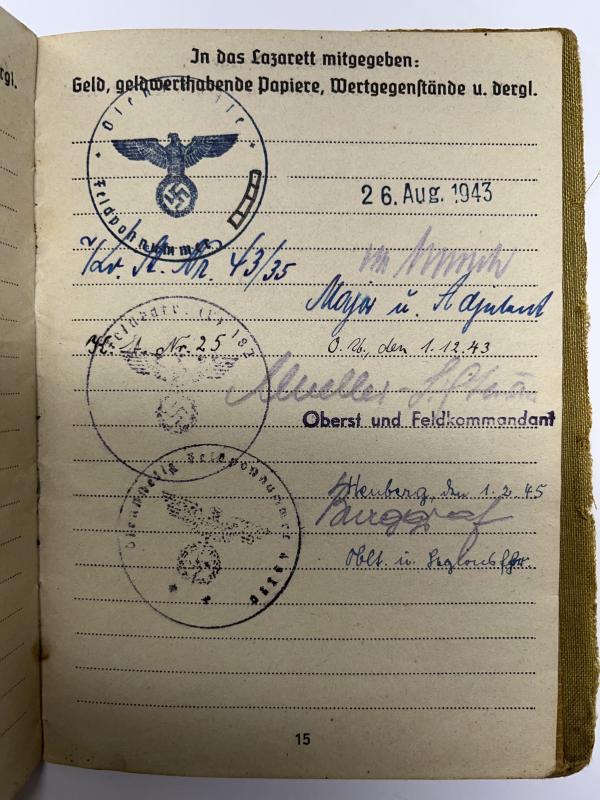 rgl.
In das Lazarett mitgegeben:
Geld, geldwerthabende Papiere, Wertgegenstände u. dergl.
Dienststelle
Feldpostnummer
26. Aug. 1943
Kr. A. Nr. 43/35
Major u. Adjutant
Kr. A. Nr. 25
O. U., den 1.12.43
Oberst und Feldkommandant
Dienststelle Feldpostnummer
Heuberg, den 1.2.45
Burggraf
Oblt. u.
15